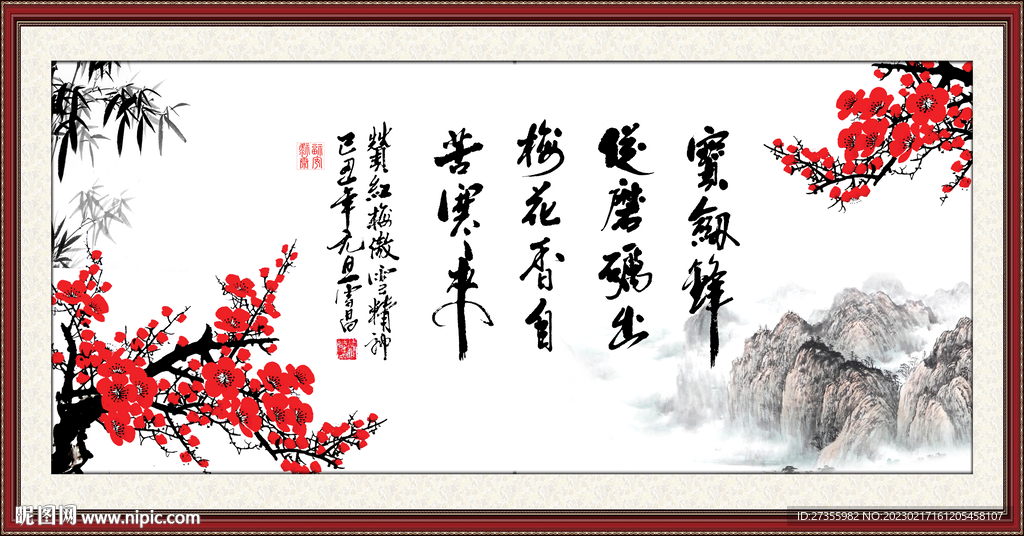 寶劍鋒
從磨礪出
梅花香自
苦寒來
贊紅梅傲雪精神
己丑年元旦
昵图网 www.nipic.com
ID:27355982 NO:20230217161205458107